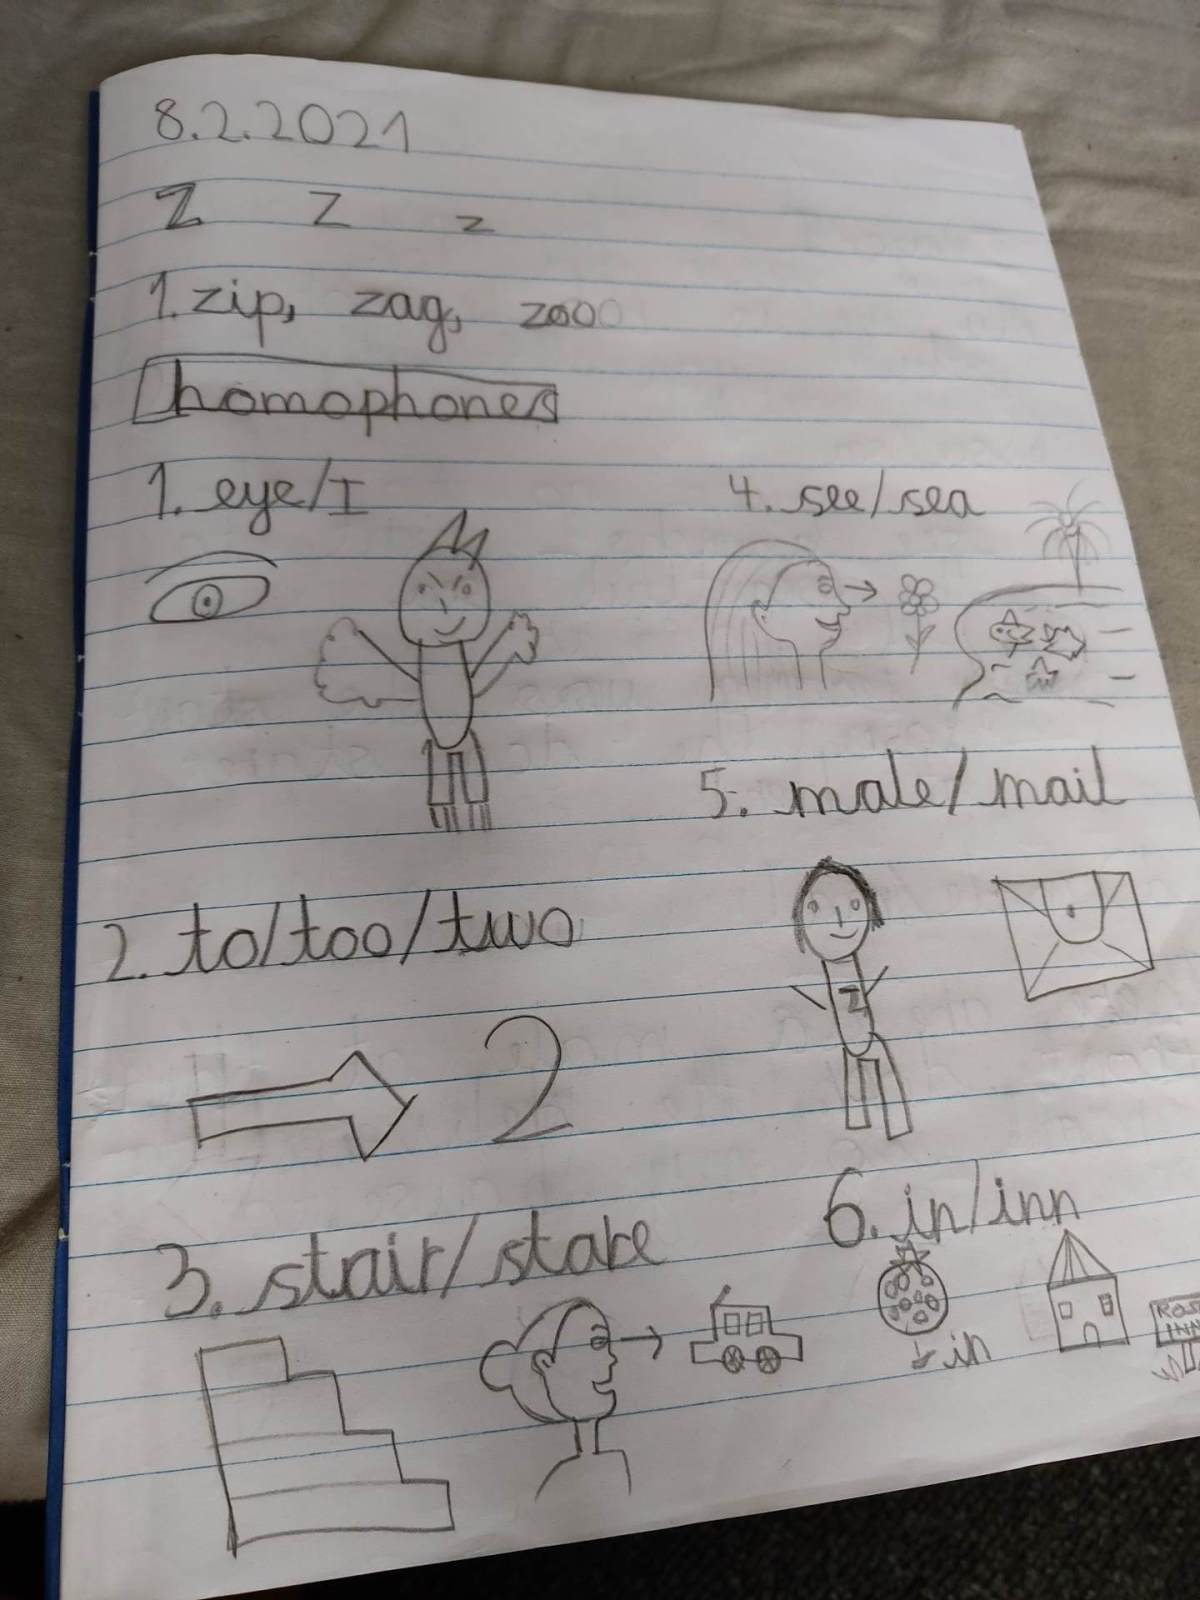 8.2.2021
Z Z z
1. zip, zag, zoo
homophones
1. eye/I
2. to/too/two
2
3. stair/stare
4. see/sea
5. male/mail
Z
6. in/inn
in
INN